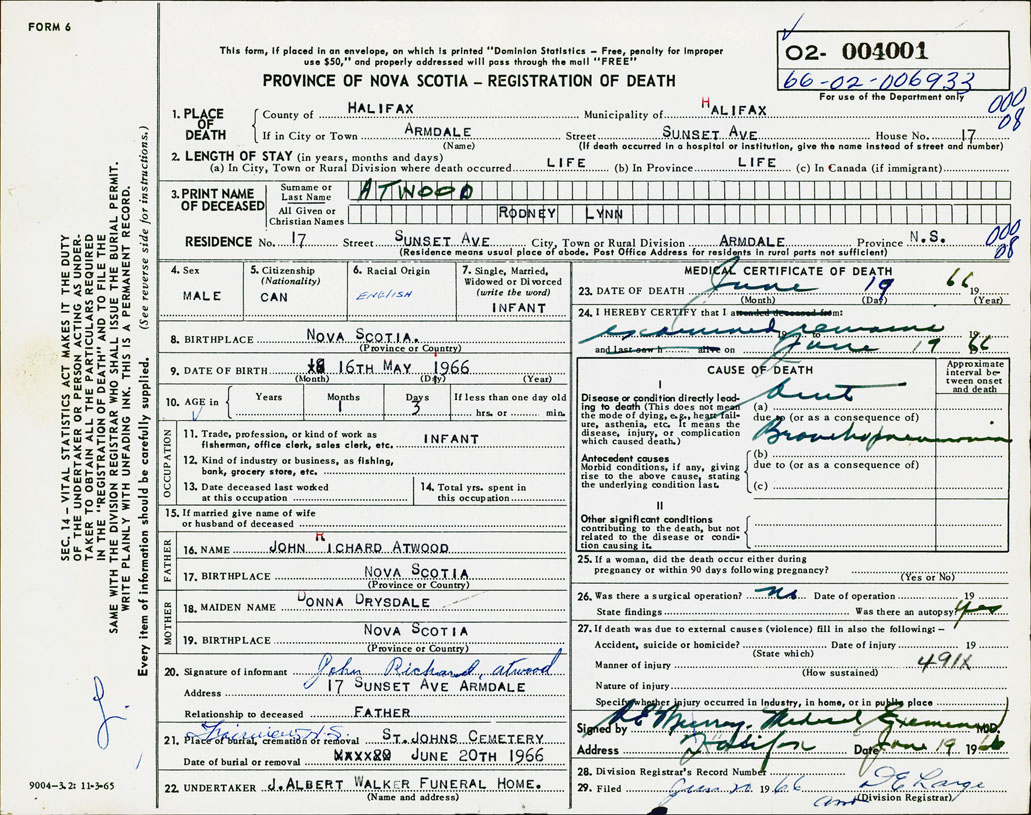 FORM 6
This form, if placed in an envelope, on which is printed "Dominion Statistics – Free, penalty for improper
use $50," and properly addressed will pass through the mail "FREE"
PROVINCE OF NOVA SCOTIA – REGISTRATION OF DEATH
02- 004001
66-02-006933
For use of the Department only
000
08
1. PLACE OF DEATH
County of HALIFAX Municipality of HALIFAX
If in City or Town ARMDALE Street SUNSET AVE House No. 17
(Name) (If death occurred in a hospital or institution, give the name instead of street and number)
2. LENGTH OF STAY (in years, months and days)
(a) In City, Town or Rural Division where death occurred LIFE (b) In Province LIFE (c) In Canada (if immigrant)
3. PRINT NAME OF DECEASED
Surname or Last Name ATWOOD
All Given or Christian Names RODNEY LYNN
RESIDENCE No. 17 Street SUNSET AVE City, Town or Rural Division ARMDALE Province N.S.
000
08
(Residence means usual place of abode. Post Office Address for residents in rural parts not sufficient)
4. Sex
MALE
5. Citizenship
(Nationality)
CAN
6. Racial Origin
ENGLISH
7. Single, Married,
Widowed or Divorced
(write the word)
INFANT
8. BIRTHPLACE NOVA SCOTIA.
(Province or Country)
9. DATE OF BIRTH 16TH MAY 1966
(Month) (Day) (Year)
10. AGE in
Years Months Days If less than one day old
1 3 hrs. or min.
OCCUPATION
11. Trade, profession, or kind of work as
fisherman, office clerk, sales clerk, etc. INFANT
12. Kind of industry or business, as fishing,
bank, grocery store, etc.
13. Date deceased last worked
at this occupation
14. Total yrs. spent in
this occupation
15. If married give name of wife
or husband of deceased
FATHER
16. NAME JOHN RICHARD ATWOOD
17. BIRTHPLACE NOVA SCOTIA
(Province or Country)
MOTHER
18. MAIDEN NAME DONNA DRYSDALE
19. BIRTHPLACE NOVA SCOTIA
(Province or Country)
20. Signature of informant John Richard Atwood
Address 17 SUNSET AVE ARMDALE
Relationship to deceased FATHER
Fairview N.S.
21. Place of burial, cremation or removal ST. JOHNS CEMETERY
Date of burial or removal JUNE 20TH 1966
22. UNDERTAKER J. ALBERT WALKER FUNERAL HOME.
(Name and address)
MEDICAL CERTIFICATE OF DEATH
23. DATE OF DEATH June 19 1966
(Month) (Day) (Year)
24. I HEREBY CERTIFY that I attended deceased from:
examined remains 19 to
and last saw h alive on June 19 1966
CAUSE OF DEATH
Approximate
interval be-
tween onset
and death
I
Disease or condition directly lead-
ing to death (This does not mean
the mode of dying, e.g., heart fail-
ure, asthenia, etc. It means the
disease, injury, or complication
which caused death.)
(a) Acute
due to (or as a consequence of)
Bronchopneumonia
Antecedent causes
Morbid conditions, if any, giving
rise to the above cause, stating
the underlying condition last.
(b)
due to (or as a consequence of)
(c)
II
Other significant conditions
contributing to the death, but not
related to the disease or condi-
tion causing it.
25. If a woman, did the death occur either during
pregnancy or within 90 days following pregnancy?
(Yes or No)
26. Was there a surgical operation? no Date of operation 19
State findings Was there an autopsy? yes
27. If death was due to external causes (violence) fill in also the following: –
Accident, suicide or homicide? Date of injury 19
(State which)
Manner of injury 491X
(How sustained)
Nature of injury
Specify whether injury occurred in industry, in home, or in public place
Signed by Murray, Medical Examiner M.D.
Address Halifax Date June 19 1966
28. Division Registrar's Record Number
29. Filed June 20 1966 D E Large
(Division Registrar)
SEC. 14 – VITAL STATISTICS ACT MAKES IT THE DUTY
OF THE UNDERTAKER OR PERSON ACTING AS UNDER-
TAKER TO OBTAIN ALL THE PARTICULARS REQUIRED
IN THE "REGISTRATION OF DEATH" AND TO FILE THE
SAME WITH THE DIVISION REGISTRAR WHO SHALL ISSUE THE BURIAL PERMIT.
WRITE PLAINLY WITH UNFADING INK. THIS IS A PERMANENT RECORD.
Every item of information should be carefully supplied. (See reverse side for instructions.)
9004-3.2: 11-3-65